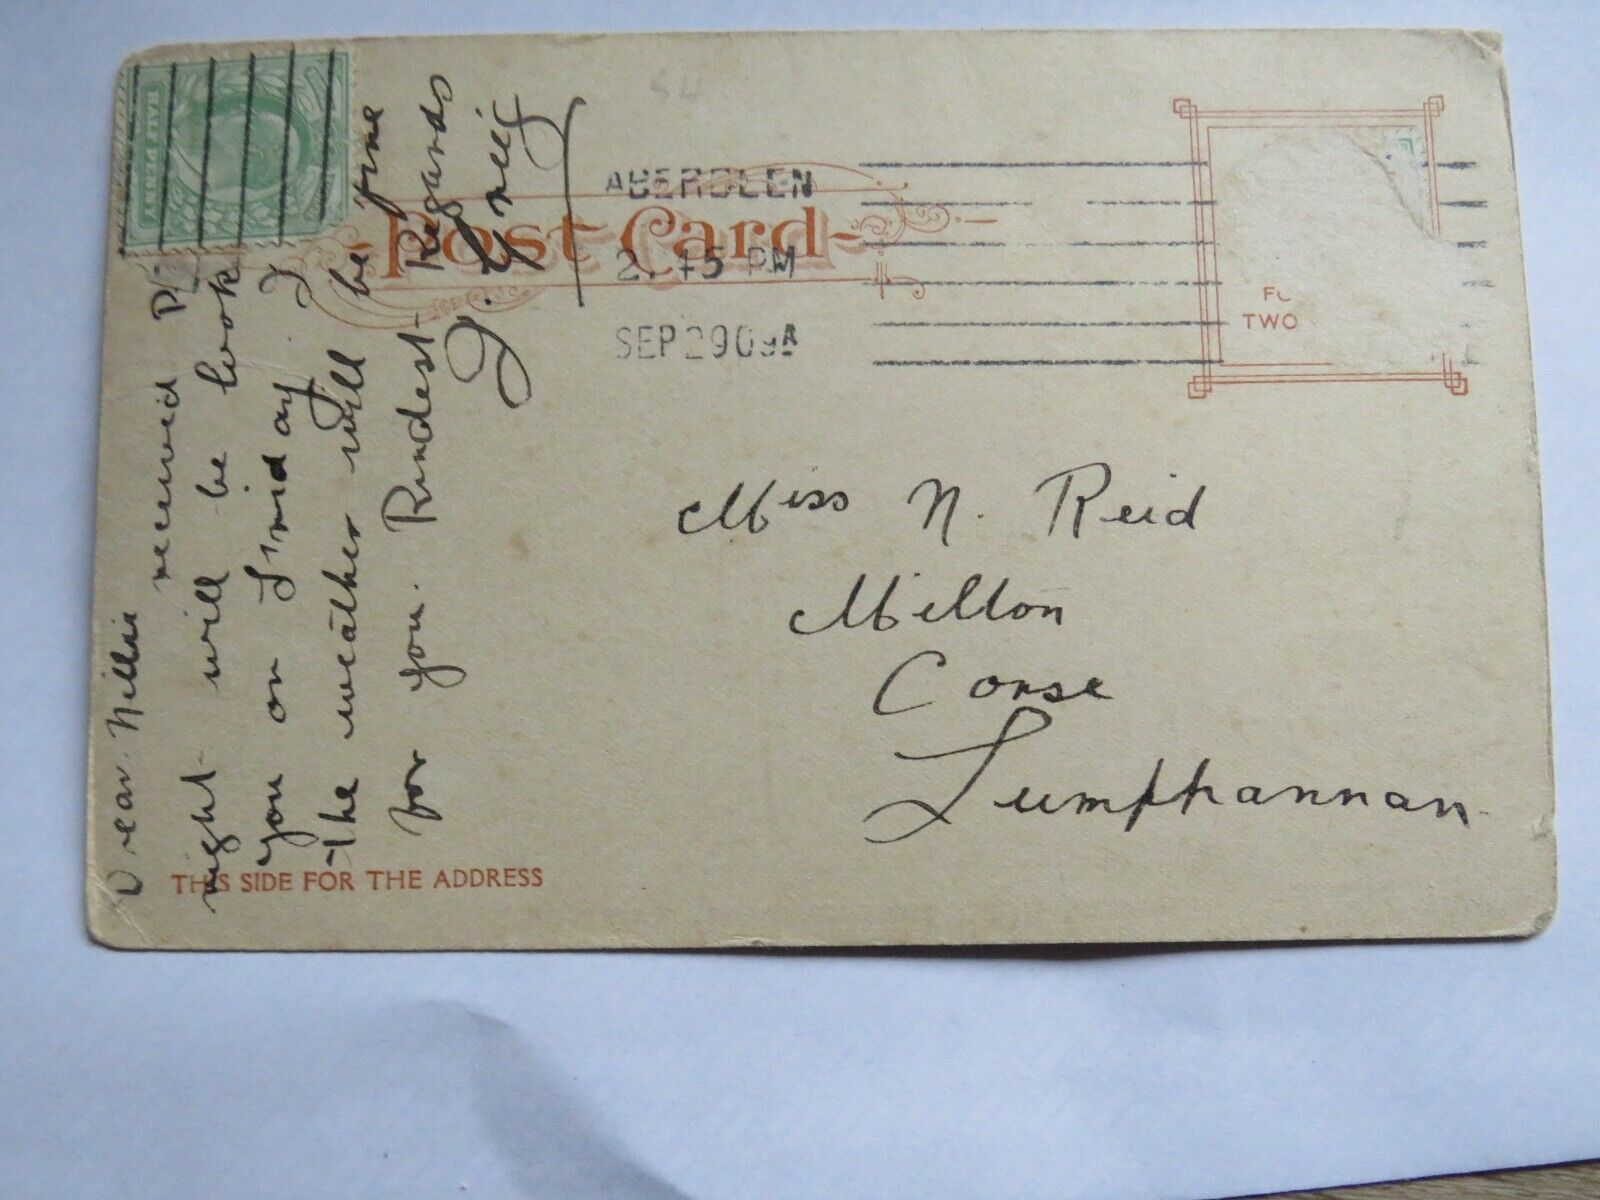 HALF PENNY
Post Card
ABERDEEN
2.15 PM
SEP 29 09 A
TWO
Dear Nillie received P.
night will be look
you on Friday. I
the weather will be fine
for you. Kindest Regards
Miss N. Reid
Milton
Corse
Lumphannan.
THIS SIDE FOR THE ADDRESS